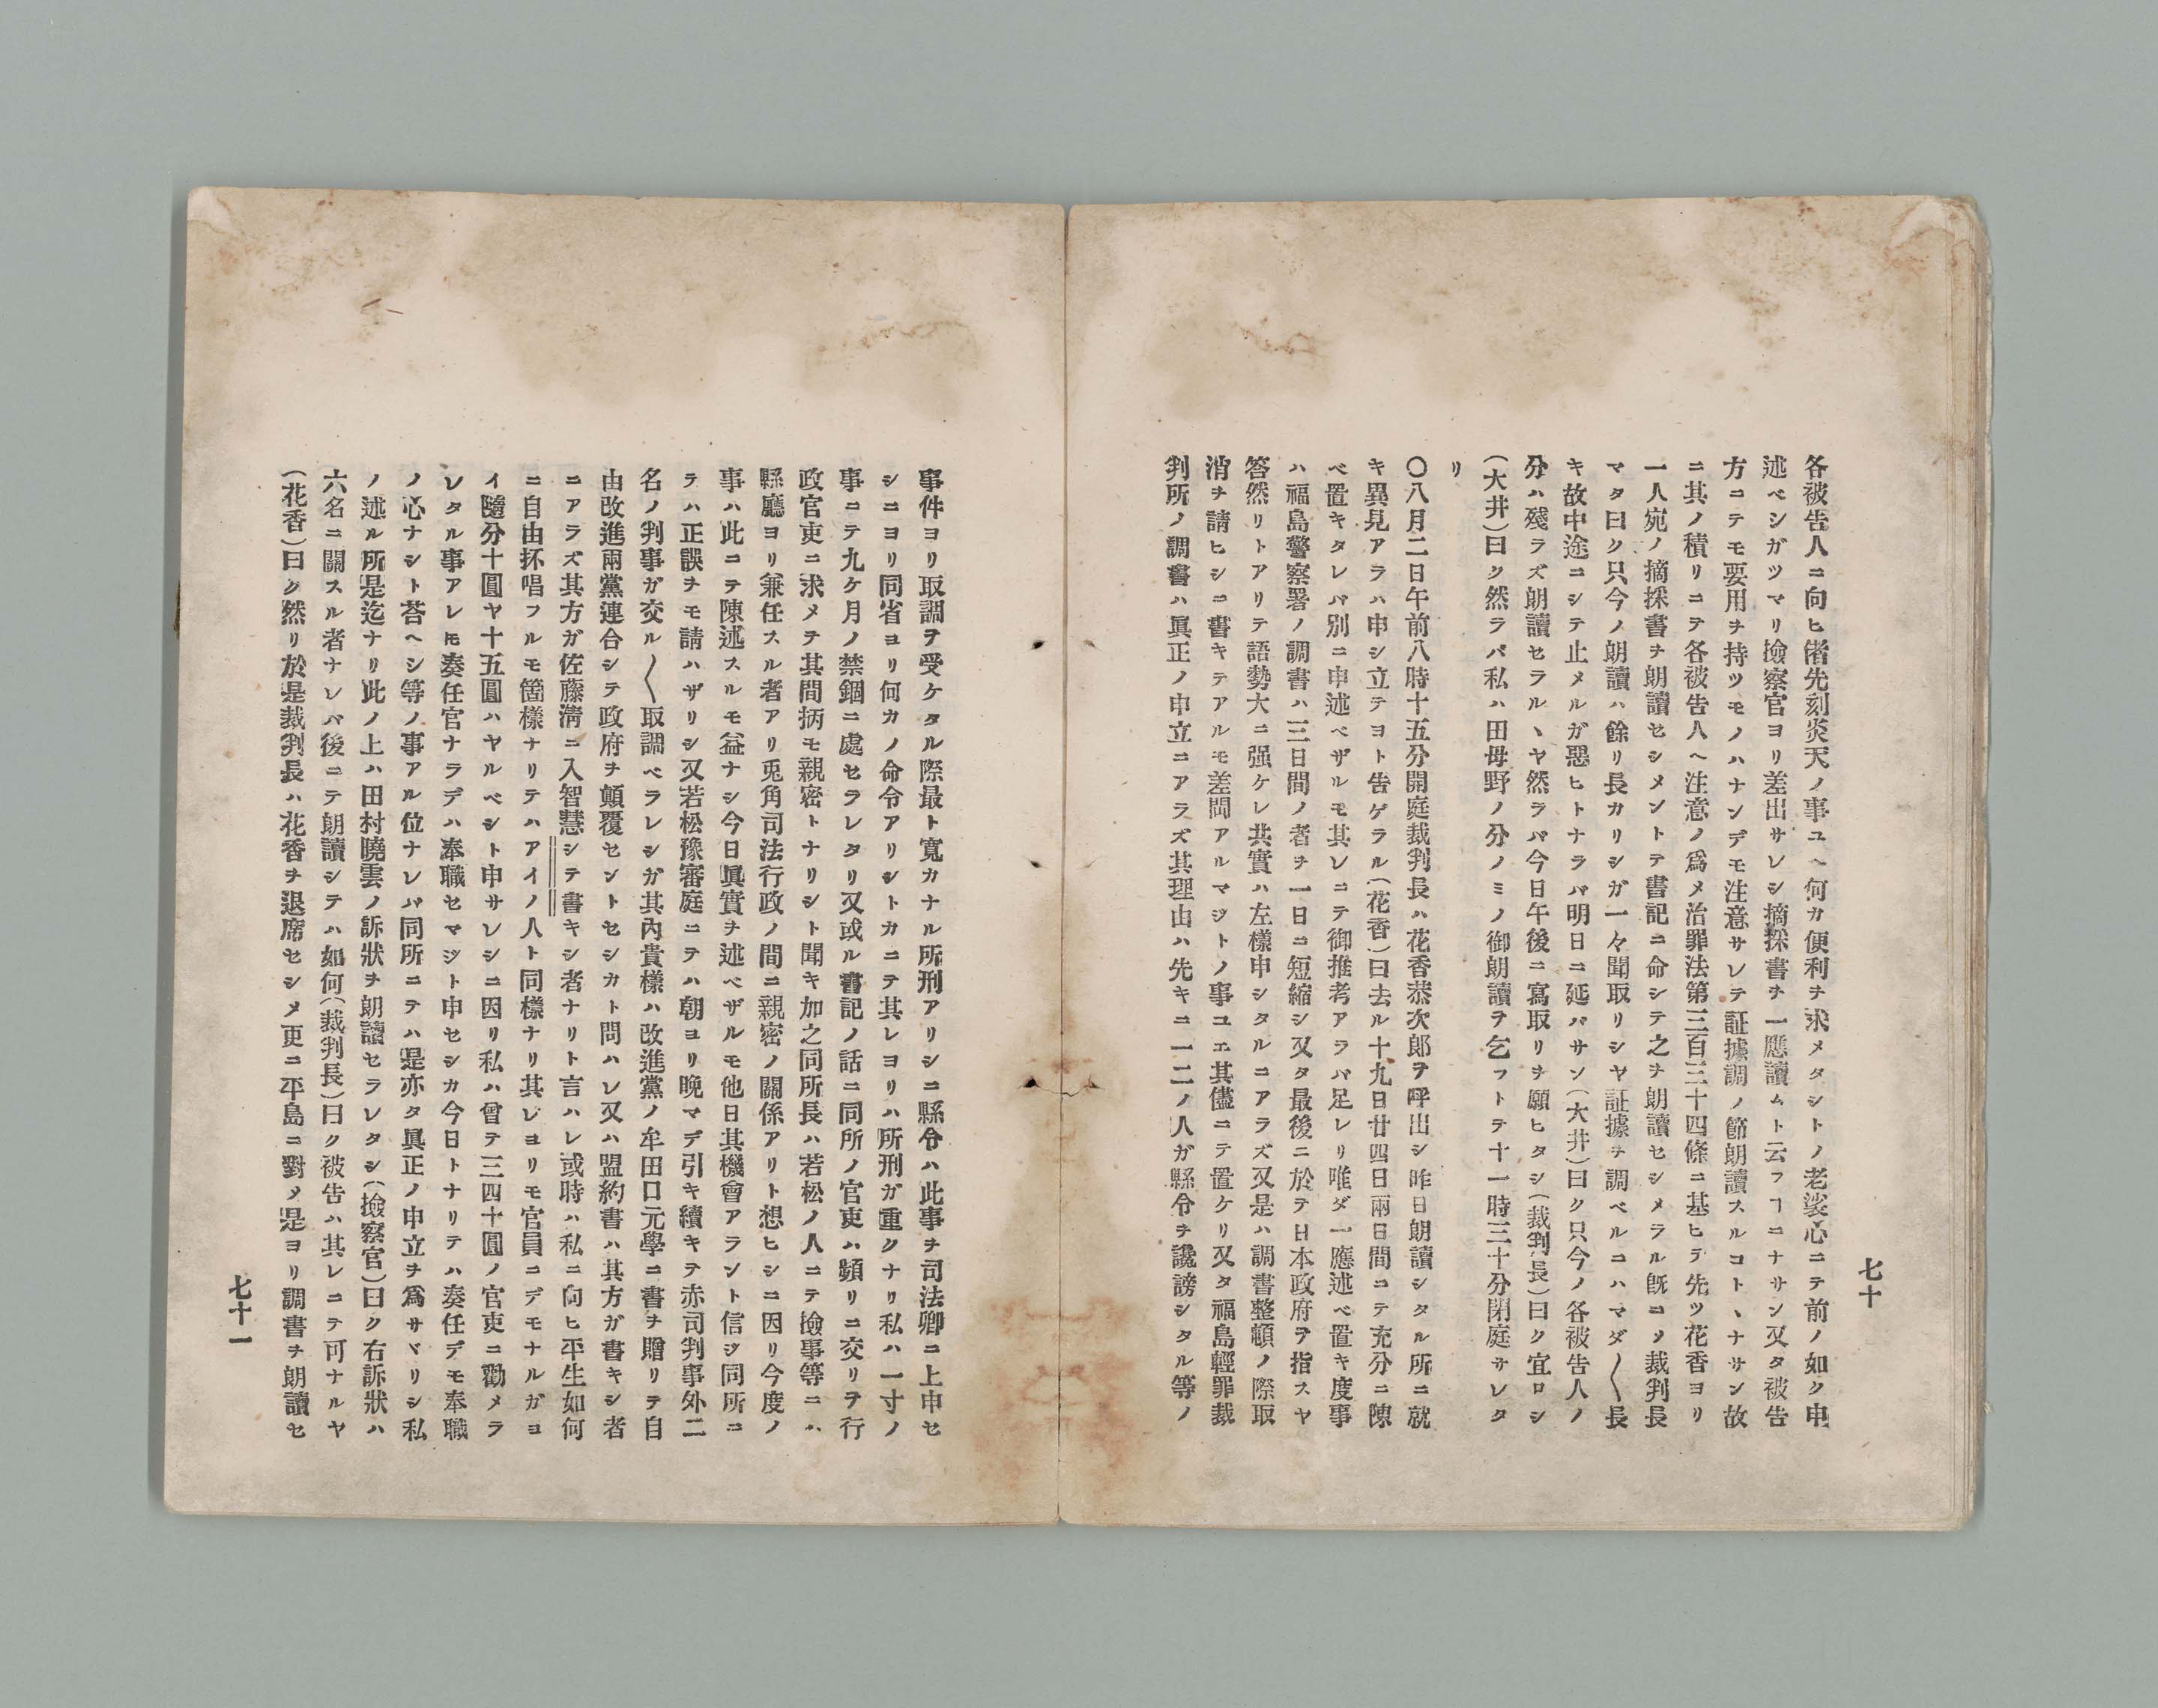 七十
各被告人ニ向ヒ偖先刻炎天ノ事ユヘ何カ便利ヲ求メタシトノ老婆心ニテ前ノ如ク申
述ベシガツマリ撿察官ヨリ差出サレシ摘採書ヲ一應讀ムト云フヿニナサン又タ被告
方ニテモ要用ヲ持ツモノハナンデモ注意サレテ証據調ノ節朗讀スルコトヽナサン故
ニ其ノ積リニテ各被告人ヘ注意ノ爲メ治罪法第三百三十四條ニ基ヒテ先ツ花香ヨリ
一人宛ノ摘採書ヲ朗讀セシメントテ書記ニ命シテ之ヲ朗讀セシメラル既ニソ裁判長
マタ曰ク只今ノ朗讀ハ餘リ長カリシガ一々聞取リシヤ証據ヲ調ベルコハマダ〱長
キ故中途ニシテ止メルガ惡ヒトナラバ明日ニ延バサン(大井)曰ク只今ノ各被告人ノ
分ハ殘ラズ朗讀セラルヽヤ然ラバ今日午後ニ寫取リヲ願ヒタシ(裁判長)曰ク宜ロシ
(大井)曰ク然ラバ私ハ田母野ノ分ノミノ御朗讀ヲ乞フトテ十一時三十分閉庭サレタ
リ
〇八月二日午前八時十五分開庭裁判長ハ花香恭次郎ヲ呼出シ昨日朗讀シタル所ニ就
キ異見アラハ申シ立テヨト告ゲラル(花香)曰去ル十九日廿四日兩日間ニテ充分ニ陳
ベ置キタレバ別ニ申述ベザルモ其レニテ御推考アラバ足レリ唯ダ一應述ベ置キ度事
ハ福島警察署ノ調書ハ三日間ノ者ヲ一日ニ短縮シ又タ最後ニ於テ日本政府ヲ指スヤ
答然リトアリテ語勢大ニ强ケレ共實ハ左樣申シタルニアラズ又是ハ調書整頓ノ際取
消ヲ請ヒシニ書キテアルモ差問アルマジトノ事ユエ其儘ニテ置ケリ又タ福島輕罪裁
判所ノ調書ハ眞正ノ申立ニアラズ其理由ハ先キニ一二ノ人ガ縣令ヲ讒謗シタル等ノ
事件ヨリ取調ヲ受ケタル際最ト寬カナル所刑アリシニ縣令ハ此事ヲ司法卿ニ上申セ
シニヨリ同省ヨリ何カノ命令アリシトカニテ其レヨリハ所刑ガ重クナリ私ハ一寸ノ
事ニテ九ケ月ノ禁錮ニ處セラレタリ又或ル書記ノ話ニ同所ノ官吏ハ頻リニ交リヲ行
政官吏ニ求メテ其間抦モ親密トナリシト聞キ加之同所長ハ若松ノ人ニテ撿事等ニハ
縣廳ヨリ兼任スル者アリ兎角司法行政ノ間ニ親密ノ關係アリト想ヒシニ因リ今度ノ
事ハ此ニテ陳述スルモ益ナシ今日眞實ヲ述ベザルモ他日其機會アラント信ジ同所ニ
テハ正誤ヲモ請ハザリシ又若松豫審庭ニテハ朝ヨリ晚マデ引キ續キテ赤司判事外二
名ノ判事ガ交ル〱取調ベラレシガ其內貴樣ハ改進黨ノ牟田口元學ニ書ヲ贈リテ自
由改進兩黨連合シテ政府ヲ顛覆セントセシカト問ハレ又ハ盟約書ハ其方ガ書キシ者
ニアラズ其方ガ佐藤淸ニ入智慧シテ書キシ者ナリト言ハレ或時ハ私ニ向ヒ平生如何
ニ自由抔唱フルモ箇樣ナリテハアイノ人ト同樣ナリ其レヨリモ官員ニデモナルガヨ
イ隨分十圓ヤ十五圓ハヤルベシト申サレシニ因リ私ハ曾テ三四十圓ノ官吏ニ勸メラ
レタル事アレモ奏任官ナラデハ奉職セマジト申セシカ今日トナリテハ奏任デモ奉職
ノ心ナシト荅ヘシ等ノ事アル位ナレバ同所ニテハ是亦タ眞正ノ申立ヲ爲サヾリシ私
ノ述ル所是迄ナリ此ノ上ハ田村曉雲ノ訴狀ヲ朗讀セラレタシ(撿察官)曰ク右訴狀ハ
六名ニ關スル者ナレバ後ニテ朗讀シテハ如何(裁判長)曰ク被告ハ其レニテ可ナルヤ
(花香)曰ク然リ於是裁判長ハ花香ヲ退席セシメ更ニ平島ニ對ノ是ヨリ調書ヲ朗讀セ
七十一